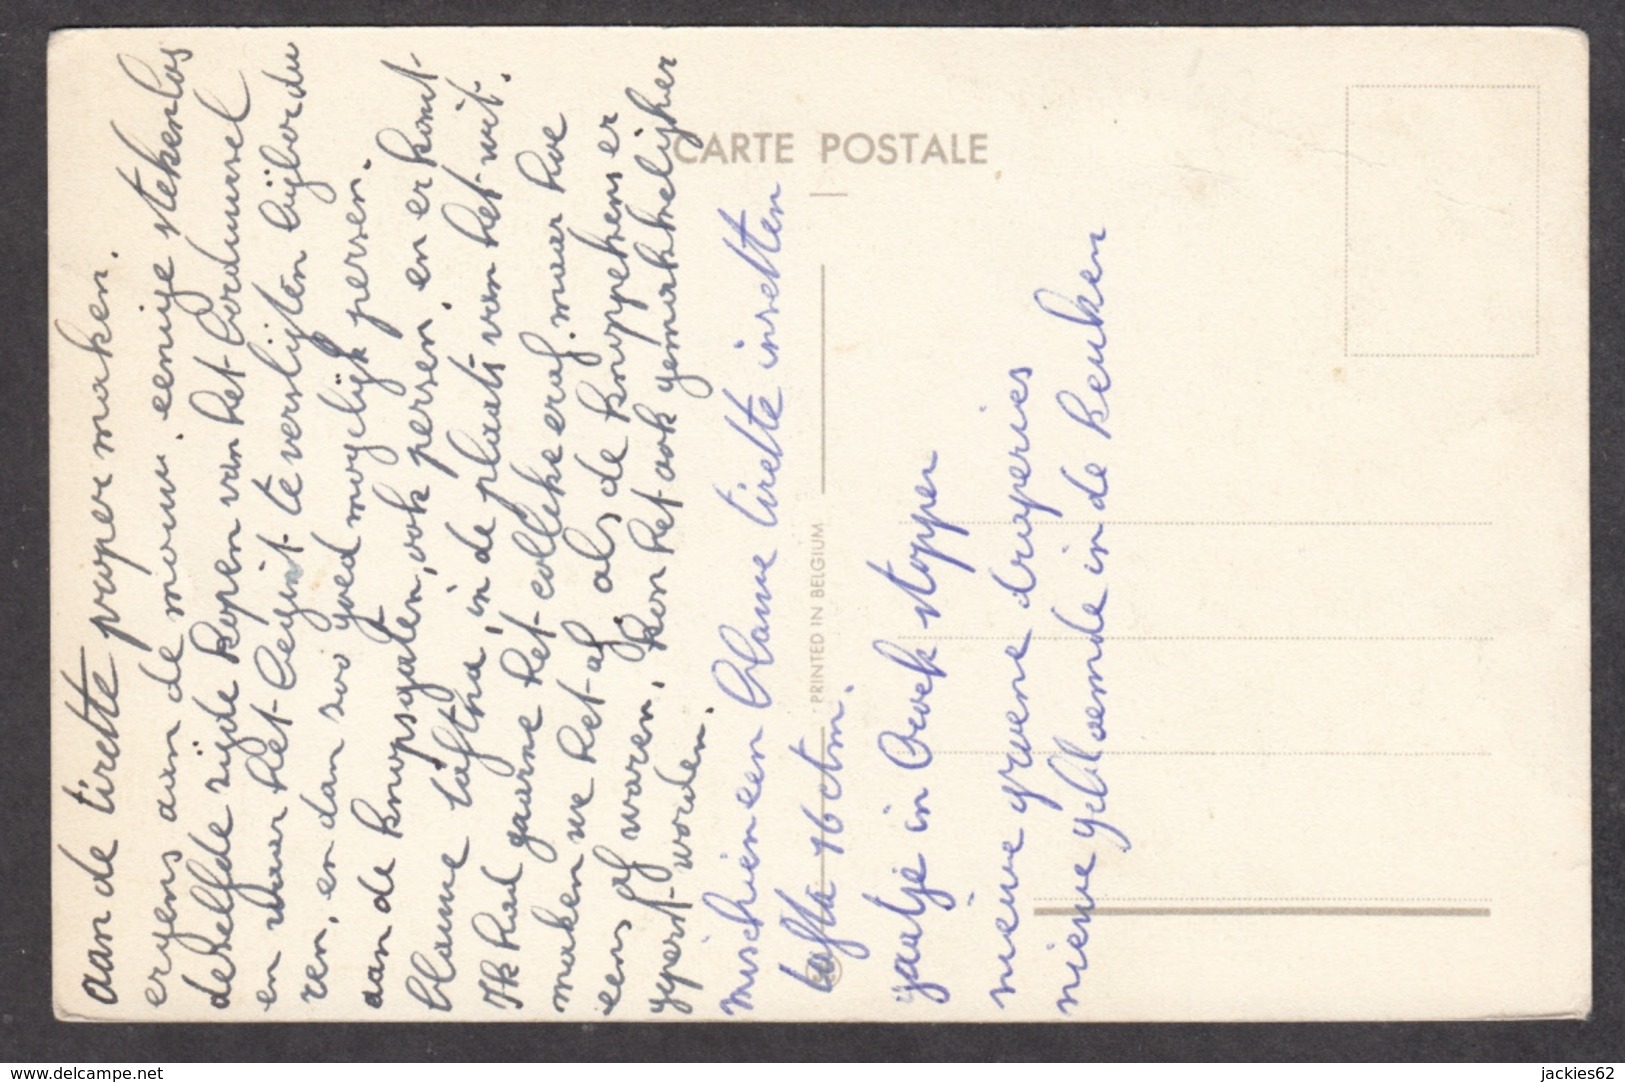 CARTE POSTALE
PRINTED IN BELGIUM
aan de tirette proper maken.
ergens aan de mouw. eenige stekenlos
deselfde zijde kopen van het borduursel
en waar het begint te verslijten bijbordu
ren, en dan zoo goed mogelijk persen.
aan de knopsgaten, ook persen, en er komt
blauwe tafta, in de plaats van het wit.
Ik had gaarne het colleke eraf. maar hoe
maken we het af als de knoppekens er
eens af waren, kon het ook gemakkelijker
gepert worden.
misschien een blauwe tirette insetten
tafta 16 ctm.
gaatje in broek stoppen
nieuwe groene draperies
nieuwe gebloemde in de keuken
www.delcampe.net
jackies62